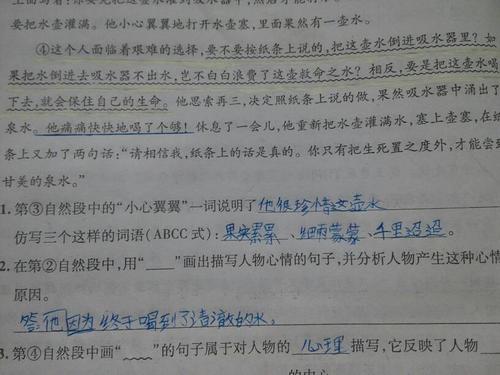 要把水壶灌满。他小心翼翼地打开水壶塞,里面果然有一壶水。
④这个人面临着艰难的选择,要不要按纸条上说的,把这壶水倒进吸水器里?如
果把水倒进去吸水器不出水,岂不白白浪费了这壶救命之水?相反,要是把这壶水喝
下去,就会保住自己的生命。他思索再三,决定照纸条上说的做,果然吸水器中涌出了
泉水。他痛痛快快地喝了个够!休息了一会儿,他重新把水壶灌满水,塞上壶塞,在纸
条上又加了两句话:“请相信我,纸条上的话是真的。你只有把生死置之度外,才能尝到
甘美的泉水。”
1. 第③自然段中的“小心翼翼”一词说明了他很珍惜这壶水
仿写三个这样的词语(ABCC 式):果实累累、细雨蒙蒙、千里迢迢。
2. 在第②自然段中,用“____”画出描写人物心情的句子,并分析人物产生这种心情
原因。
答:他因为终于喝到了清澈的水。
3. 第④自然段中画“﹏﹏”的句子属于对人物的 心理 描写,它反映了人物